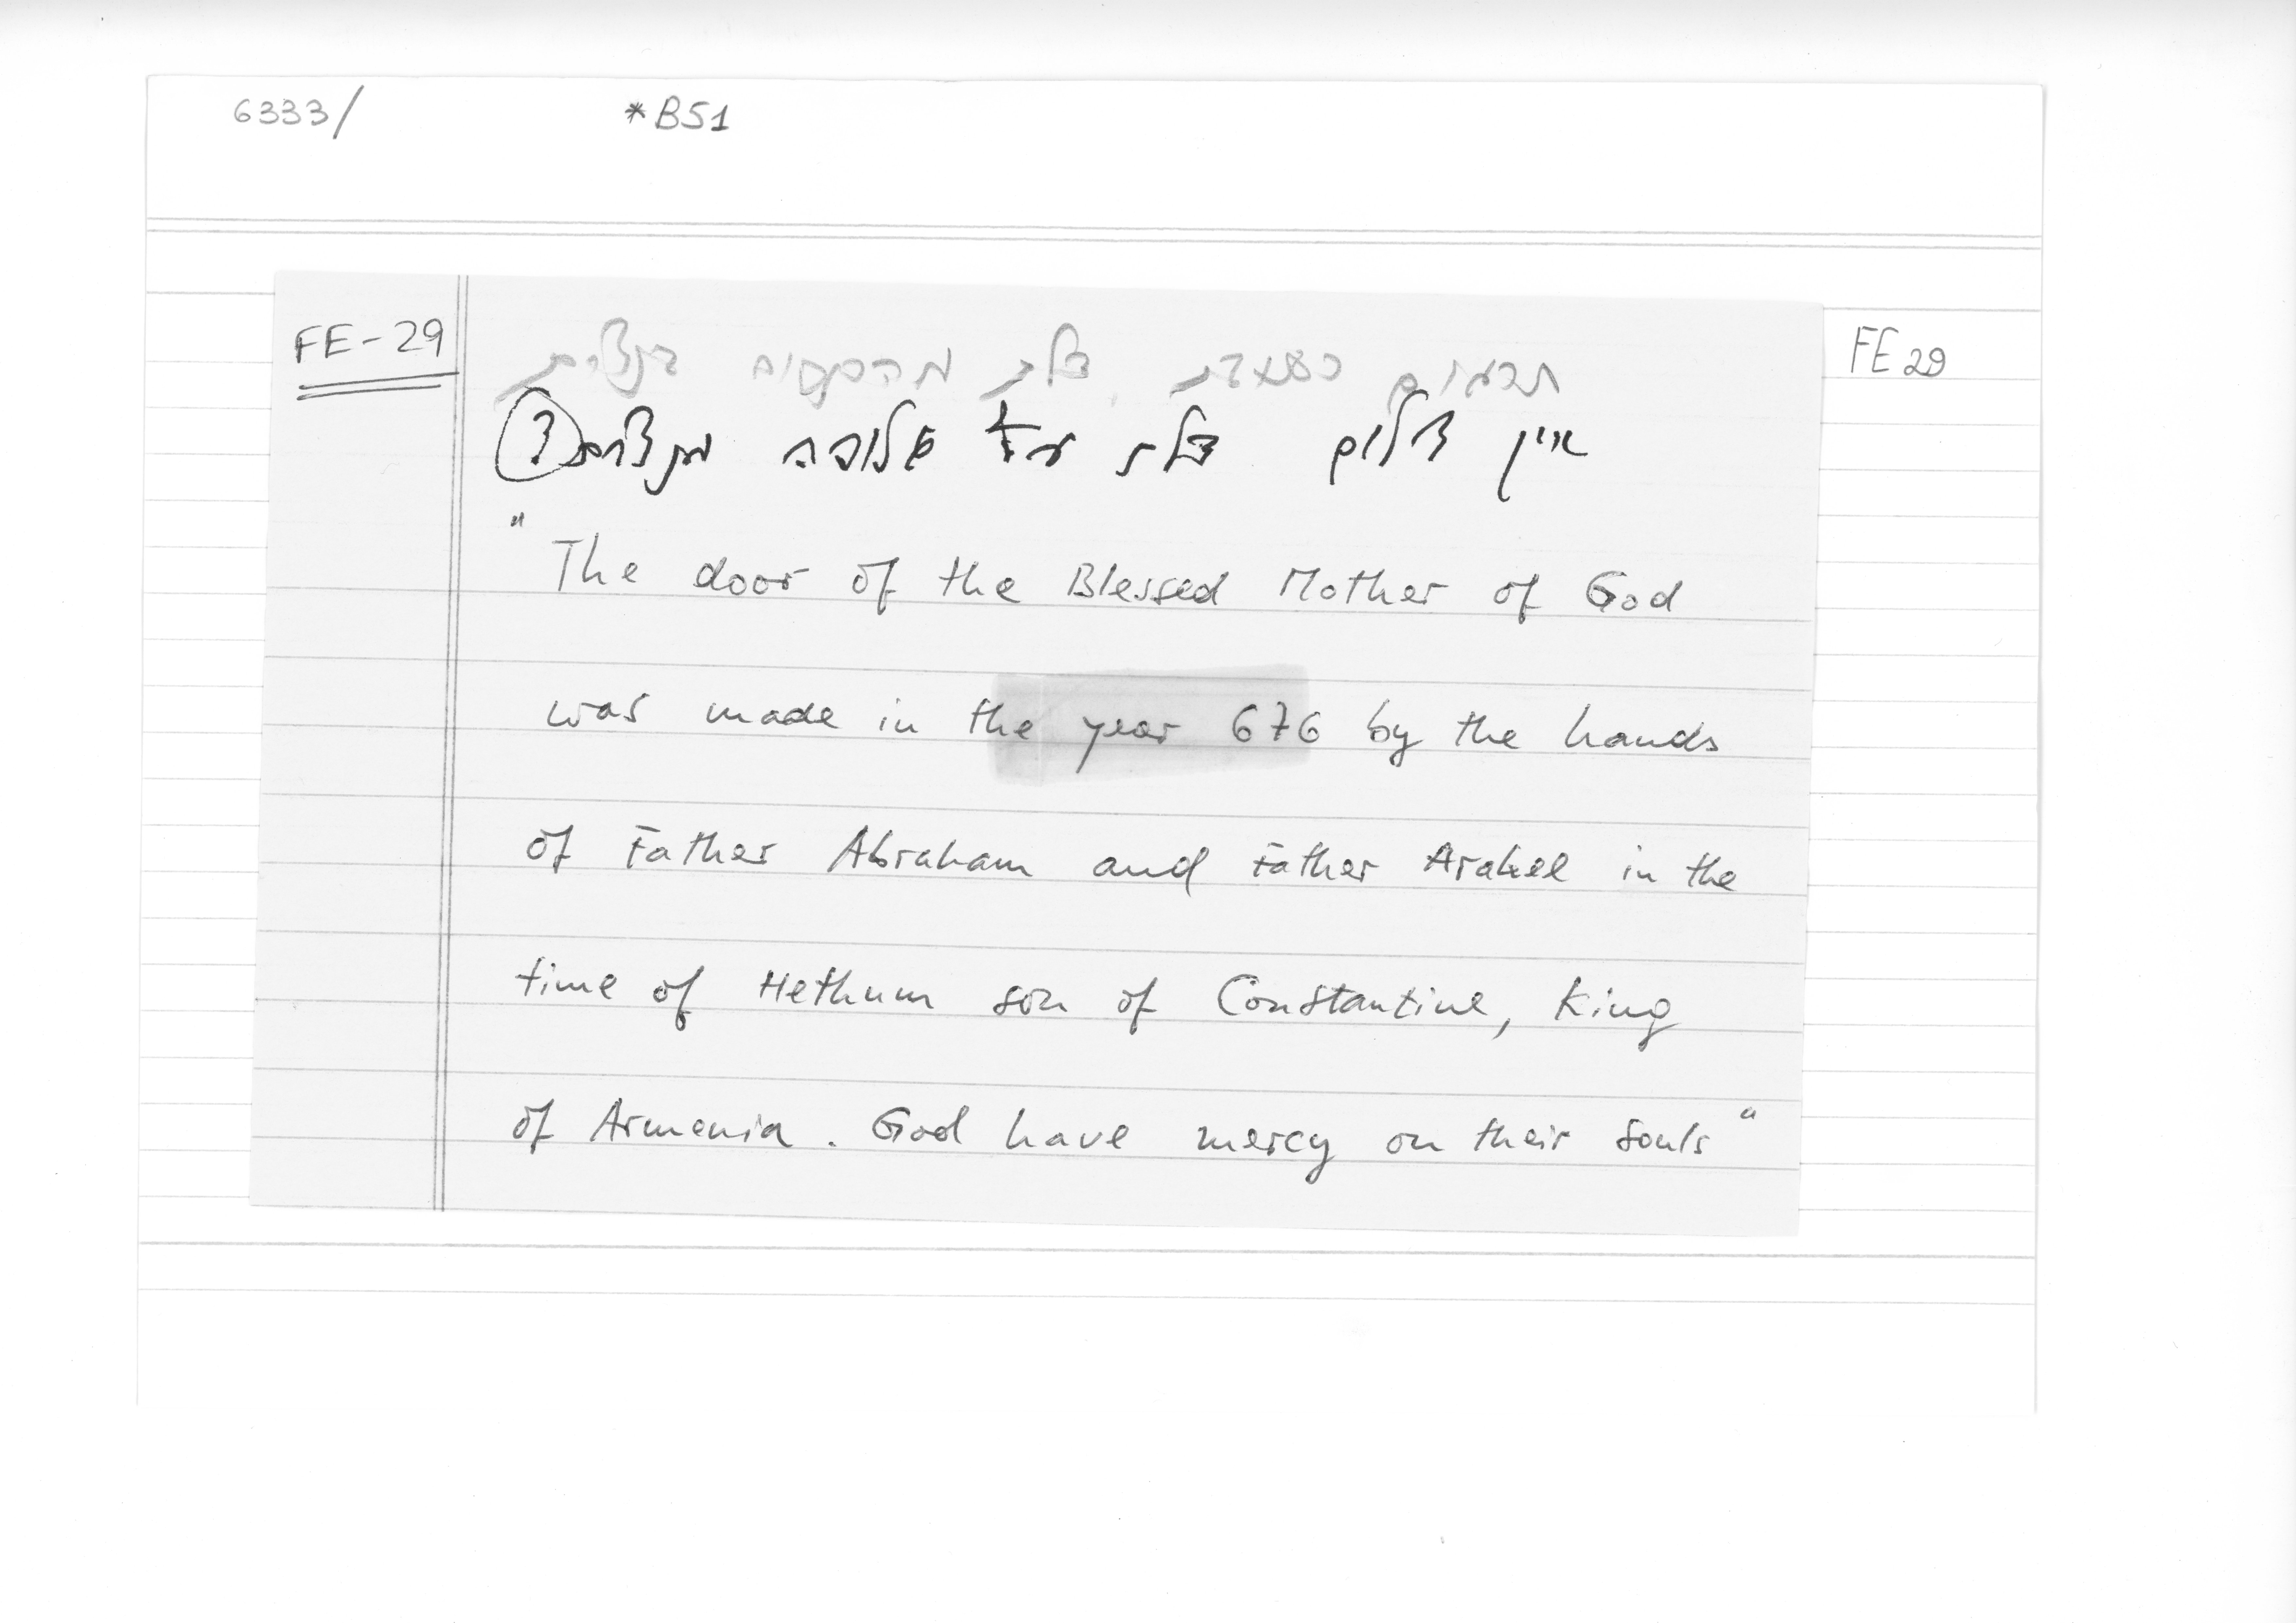 6333/ *B51
FE-29
FE 29
אין צילום דלת עץ
"The door of the Blessed Mother of God
was made in the year 676 by the hands
of Father Abraham and Father Arakel in the
time of Hethum son of Constantine, King
of Armenia. God have mercy on their souls"